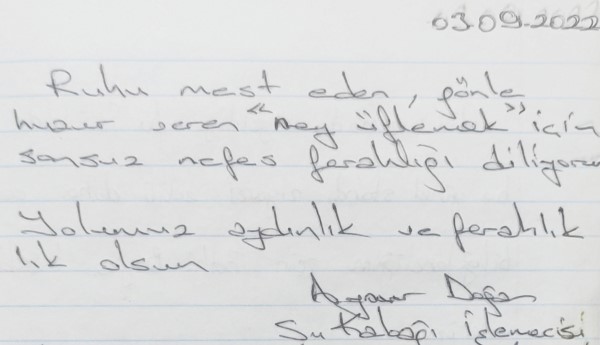 03.09.2022
Ruhu mest eden, gönle
huzur veren "ney üflemek" için
sonsuz nefes ferahlığı diliyorum
Yolunuz aydınlık ve ferahlık
lık olsun
Aynur Doğan
Su Kabağı İşlemecisi